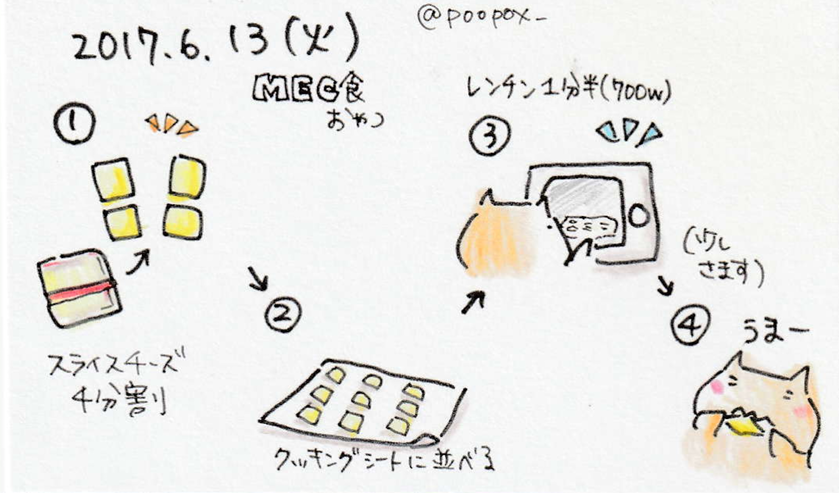 @poopox_
2017.6.13(火)
MEC食
おやつ
①
スライスチーズ
4分割り
②
クッキングシートに並べる
レンチン1分半(700w)
③
(少し
さます)
④
うまー